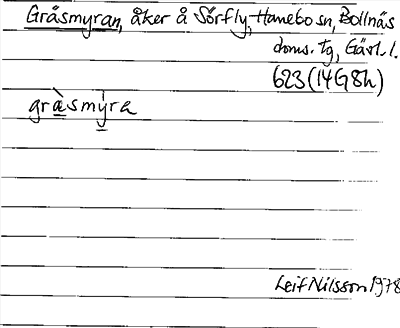 Gräsmyran, åker å Sörfly, Hanebo sn, Bollnäs
doms. tg, Gävl. l.
623 (14G8h)
gràsmýra
Leif Nilsson 1978